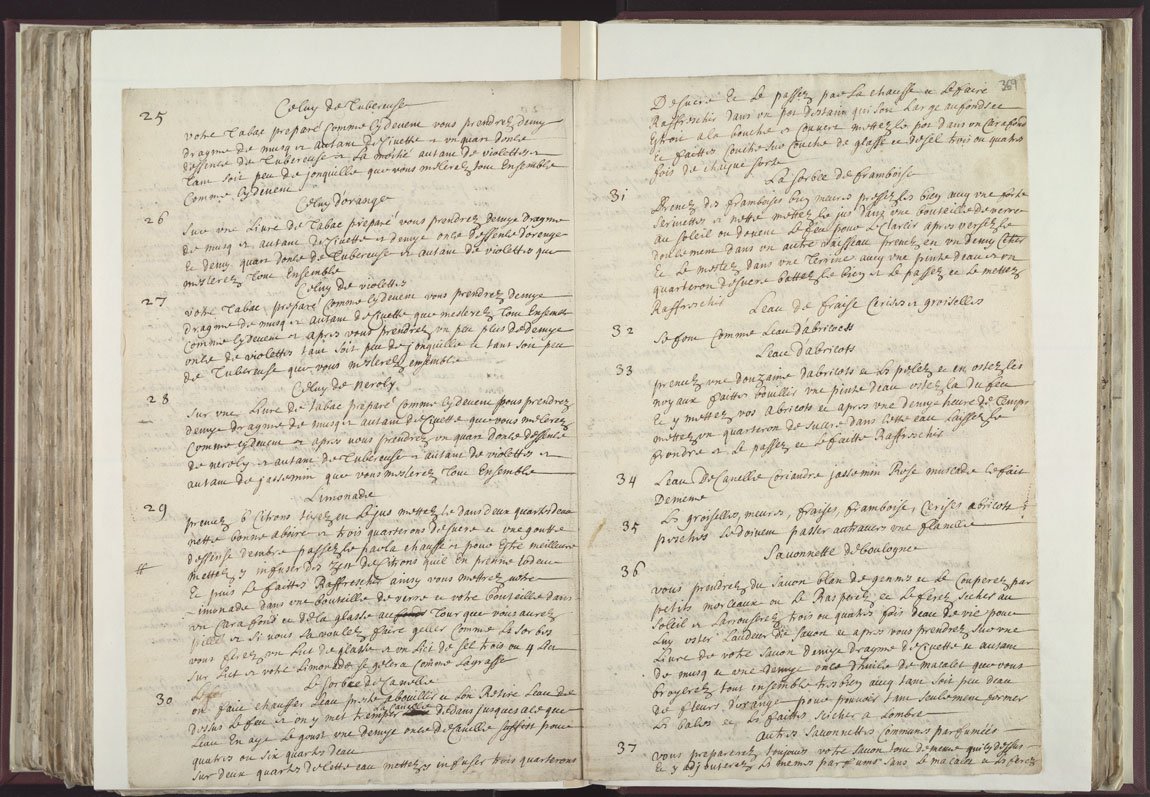 25
Celuy de Tubereuse
votre Tabac preparé Comme Cy devent vous prendrez demy
dragme de musq et autant de Civette et un quart donse
dessense de Tubereuse et La moitié autant de violettes et
Tant soit peu de jonquille que vous mêlerez tout Ensemble
Comme Cy devent
Celuy d'orange
26
Sur une Livre de Tabac preparé vous prendrez demye dragme
de musq et autant de Civette et demye onse dessense d'orenge
Et demy quart donse de Tubereuse et autant de violettes que
meslerez Tout Ensemble
Celuy de violettes
27
votre Tabac preparé Comme Cy devent vous prendrez demye
dragme de musq et autant de Civette que meslerez Tout Ensemble
Comme Cy devent et apres vous prendrez un peu plus de demye
onse de violettes tant soit peu de jonquille et tant soit peu
de Tubereuse que vous meslerez ensemble
Celuy de Neroly
28
Sur une Livre de tabac preparé Comme Cy devent vous prendrez
demye dragme de musq et autant de Civette que vous mêlerez
Comme Cy devent et apres vous prendrez un quart donse dessense
de neroly et autant de Tubereuse et autant de violettes et
autant de jassemin que vous meslerez Tout Ensemble
Limonade
29
prenez 6 Citrons tirez en Le jus mettez Le dans deux quartes deau
nette bonne a boire et trois quarterons de sucre et une goutte
dessense d'embre passez Le par La chausse et pour Estre meilleure
# mettez y infuser des zest de Citrons quil En prenne Lodeur
Et puis Le faittes Raffreschir ainsy vous mettrez votre
Limonade dans une bouteille de verre et votre bouteille dans
un Carafond et de la glasse au Tour que vous aurez
pillée et si vous La voulez faire geller Comme La sorbes
vous ferez un Lict de glasse et un Lict de sel trois ou 4 Lits
sur Lict et votre Limonade se gelera Comme La grasse
Le Sorbec de Canelle
30
on fait chauffer Leau preste a bouillir et Lon Retire Leau de
dessus Le feu et on y met tremper la Canelle dedans jusques a ce que
Leau En aye Le goust une demye onse de Canelle suffist pour
quatres ou six quartes deau
sur deux quartes de cette eau mettez y infuser trois quarterons
369
De sucre Et Le passez par La chausse et Le faire
Raffreschir dans un pot destain qui soit Large au fonds et
Estroit a la bouche et Couvert mettez Le pot dans un Carafond
Et faittes Couche sur Couche de glasse et de sel trois ou quatres
fois de chaque sorte
La Sorbec de framboise
31
Prenez des framboises bien meures pressez Les bien avec une forte
serviettes et nette mettez Le jus dans une bouteille de verre
au soleil ou devent Le feu pour Le Clarcir apres versez Le
doucement dans un autre vaisseau prenez en un demy
Et Le mettez dans une Terrine avec une pinte deau et un
quarteron de sucre battez Le bien et Le passez et Le mettez
Raffreschir
Leau de fraise Cerises et groiselles
32
Se font Comme Leau dabricots
Leau dabricots
33
prenez une douzaine dabricots et Les pelez et en ostez Les
noyaux faittes bouillir une pinte deau ostez La du feu
Et y mettez vos Abricots et apres une demye heure de Temps
mettez un quarteron de sucre dans cette eau Laissez Le
fondre et Le passez et Le faitte Raffreschir
34
Leau De Canelle Coriandre jassemin Rose muscade se fait
De meme
35
Les groiselles, meures, fraises, framboise, Cerises abricots
pesches se doivent passer autravers une flanelle
Savonnette de boulogne
36
vous prendrez du savon blan de gennes et Le Couperez par
petits morceaux ou Le Rasperez et Le ferez secher au
soleil et Larrouserez trois ou quatres fois deau de vie pour
Luy oster Laudeur du savon et apres vous prendrez sur une
Livre de votre savon demye dragme de Civette et autant
de musq et une demye once d'huile de macalet que vous
broyerez tout ensemble tres bien avec tant soit peu deau
de fleurs durange pour pouvoir tant seulement former
Les bales et Les faittes secher a Lombre
Autres Savonnettes Communs parfumées
37
vous preparerez toujours votre savon tout de meme quicy dessus
Et y adjouterez Les memes parfums sans Le macalet et Les ferez